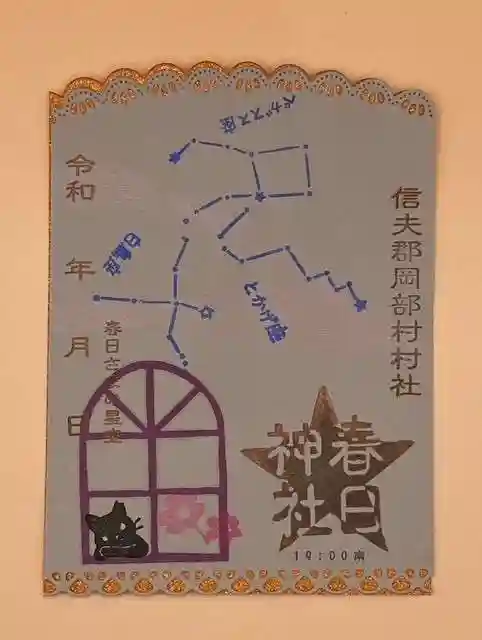 信夫郡岡部村村社
ペガスス座
とかげ座
白鳥座
令和 年 月 日
春日さんの星空
春日
神社
19:00南